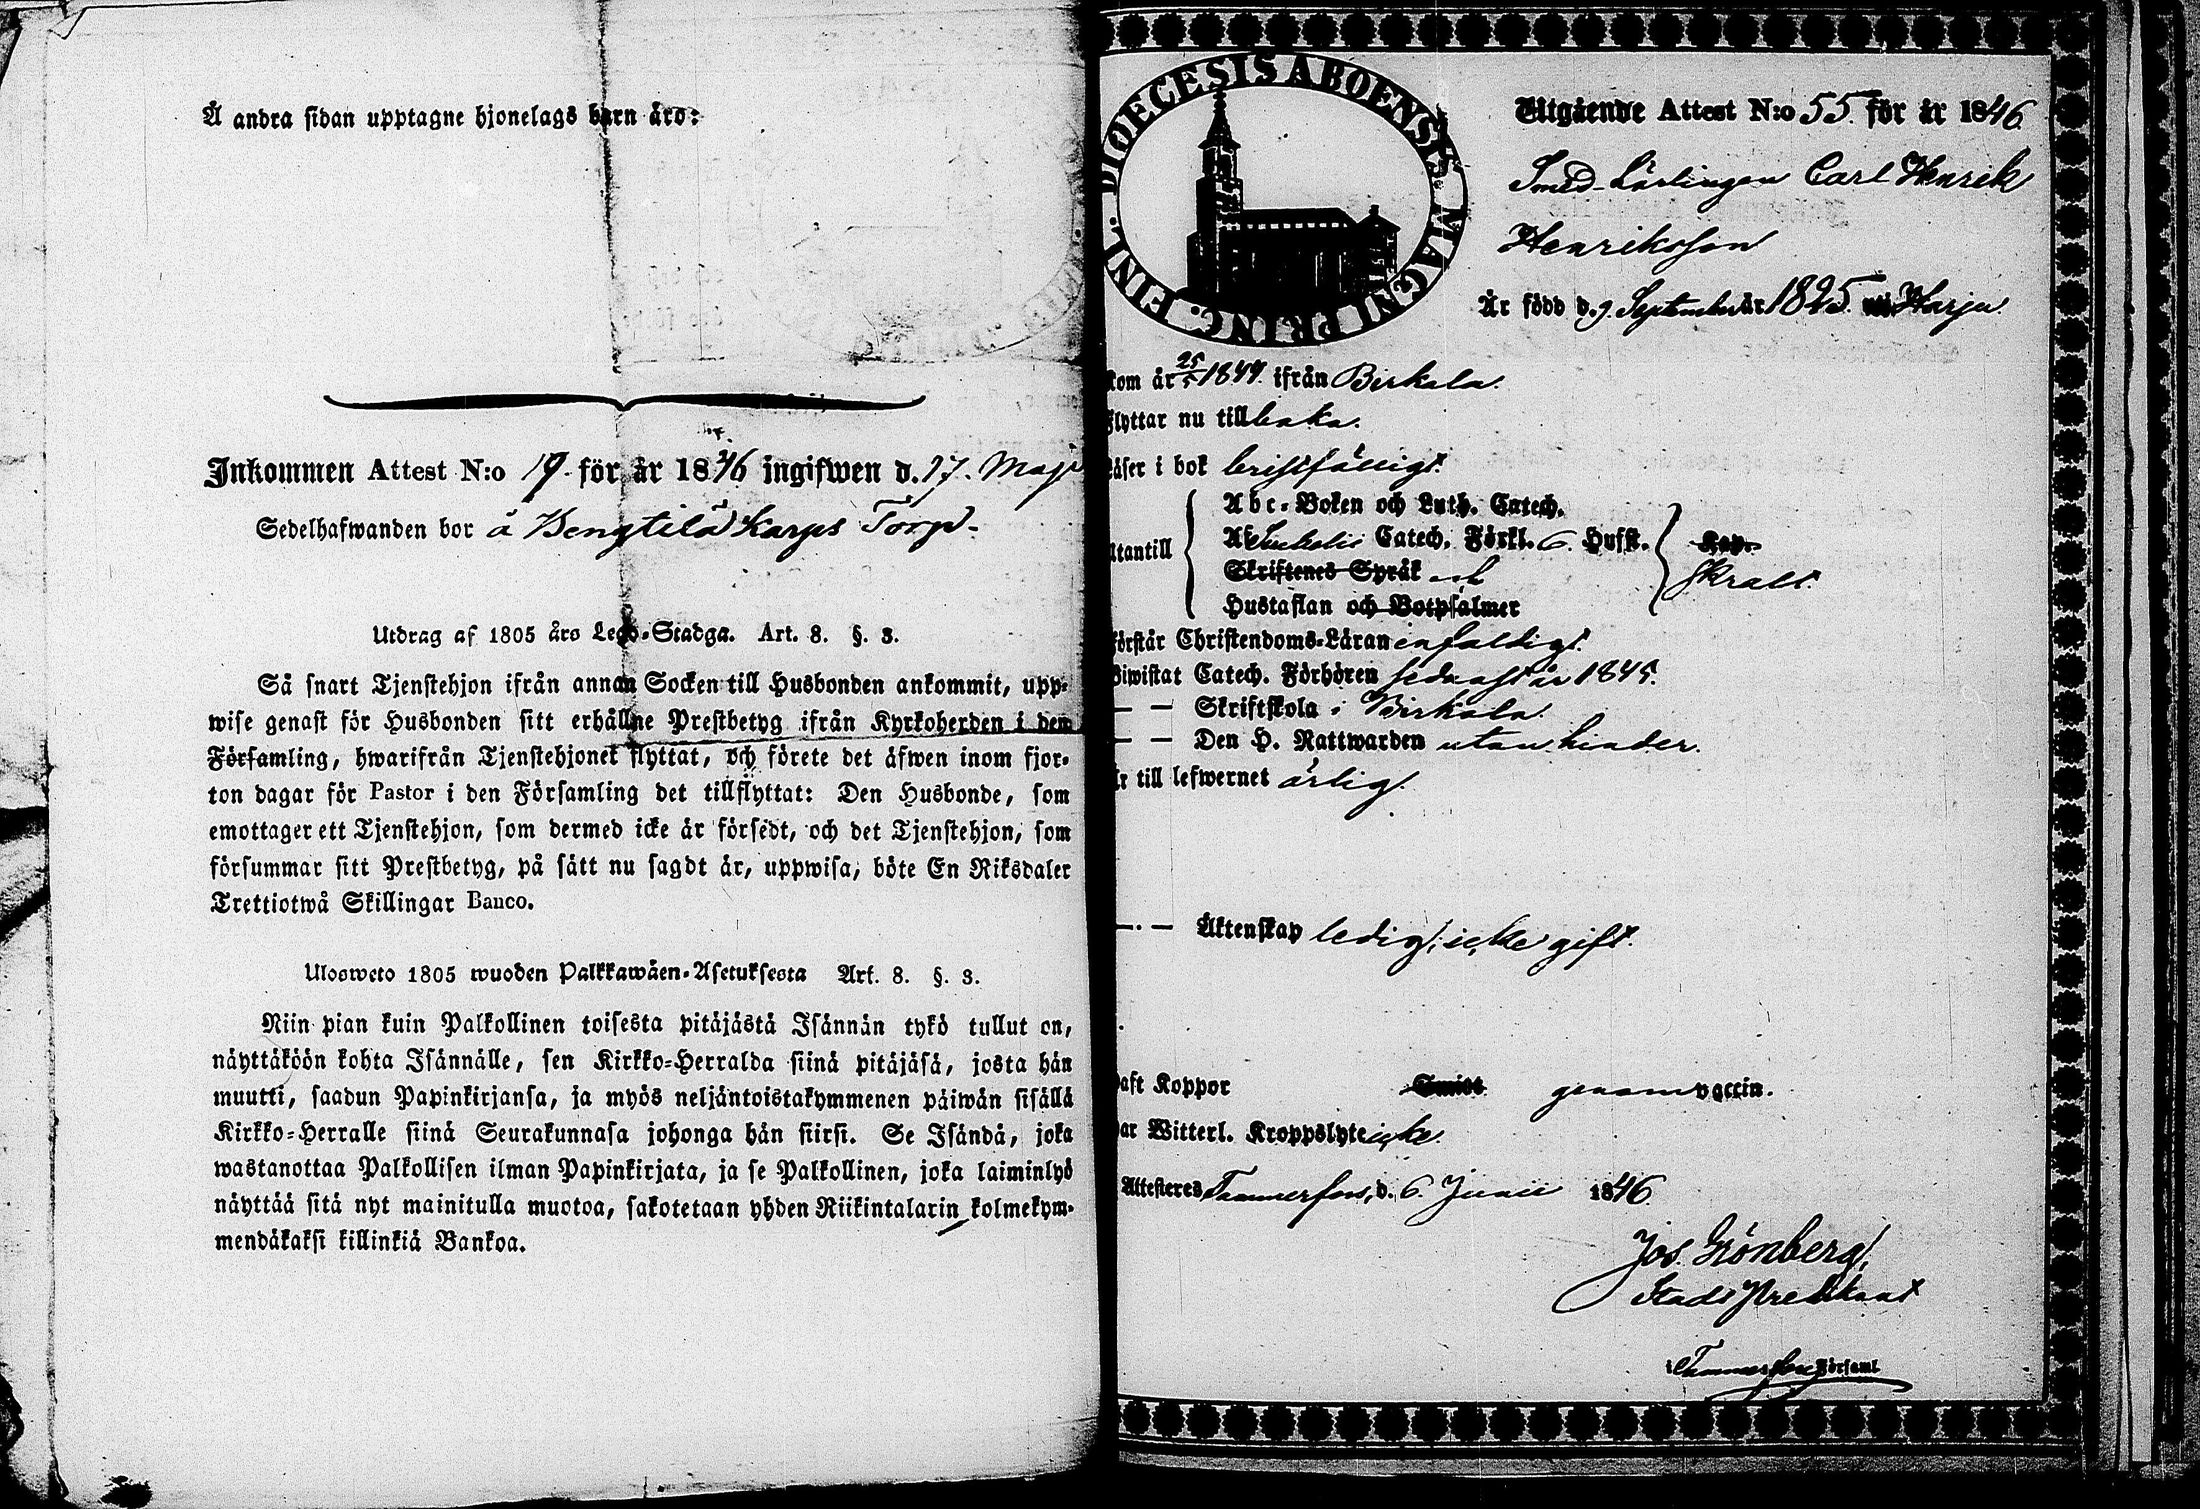 Å andra sidan upptagne hjonelags barn äro:
Inkommen Attest N:o 19. för år 1846 ingifwen d. 17. Maji
Sedelhafwanden bor å Bengtilä Karps Torp.
Utdrag af 1805 års Lego-Stadga. Art. 8. §. 3.
Så snart Tjenstehjon ifrån annan Socken till Husbonden ankommit, upp-
wise genast för Husbonden sitt erhållne Prestbetyg ifrån Kyrkoherden i den
Församling, hwarifrån Tjenstehjonet flyttat, och förete det äfwen inom fjor-
ton dagar för Pastor i den Församling det tillflyttat: Den Husbonde, som
emottager ett Tjenstehjon, som dermed icke är försedt, och det Tjenstehjon, som
försummar sitt Prestbetyg, på sätt nu sagdt är, uppwisa, böte En Riksdaler
Trettiotwå Skillingar Banco.
Ulosweto 1805 wuoden Palkkawäen-Asetuksesta Art. 8. §. 3.
Niin pian kuin Palkollinen toisesta pitäjästä Isännän tykö tullut on,
näyttäköön kohta Isännälle, sen Kirkko-Herralda siinä pitäjäsä, josta hän
muutti, saadun Papinkirjansa, ja myös neljäntoistakymmenen päiwän sisällä
Kirkko-Herralle siinä Seurakunnasa johonga hän siirsi. Se Isändä, joka
wastanottaa Palkollisen ilman Papinkirjata, ja se Palkollinen, joka laiminlyö
näyttää sitä nyt mainitulla muotoa, sakotetaan yhden Riikintalarin kolmekym-
mendäkaksi killinkiä Bankoa.
DIOECESIS ABOENSIS. MAGNI PRINC. FINL.
Utgående Attest N:o 55. för år 1846.
Smed-Lärlingen Carl Henrik
Henriksson
Är född d. 9 September år 1825. Harju.
kom år 25/5 1844. ifrån Birkala.
flyttar nu tillbaka.
Läser i bok bristfälligt.
Utantill
Abc-Boken och Luth. Catech.
Af Svebelii Catech. Förkl. 6. Hufst.
Skriftenes Språk och
Hustaflan och Botpsalmer
Kap.
skralt.
förstår Christendoms-Läran enfaldigt.
Biwistat Catech. Förhören sednast år 1845.
— — Skriftskola i Birkala.
— — Den H. Nattwarden utan hinder.
är till lefwernet ärlig.
—.— Äktenskap ledig, icke gift.
haft Koppor genom vaccin.
har Witterl. Kroppslyte icke.
Attesteres Tammerfors, d. 6. Junii 1846.
Jos. Grönberg,
Stads Predikant
i Tammerfors Församl.